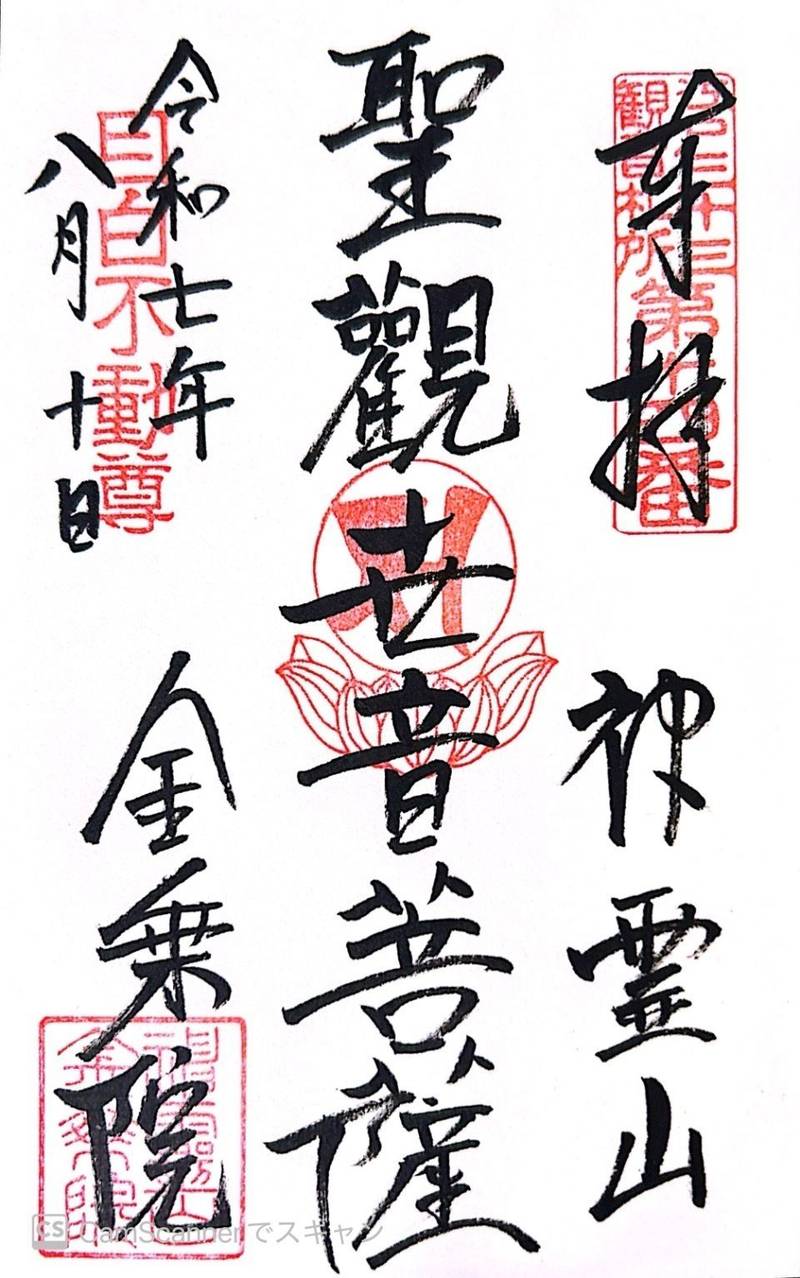 奉拝
神霊山
聖觀世音菩薩
令和七年
八月十日
金乗院
目白不動尊
CamScannerでスキャン